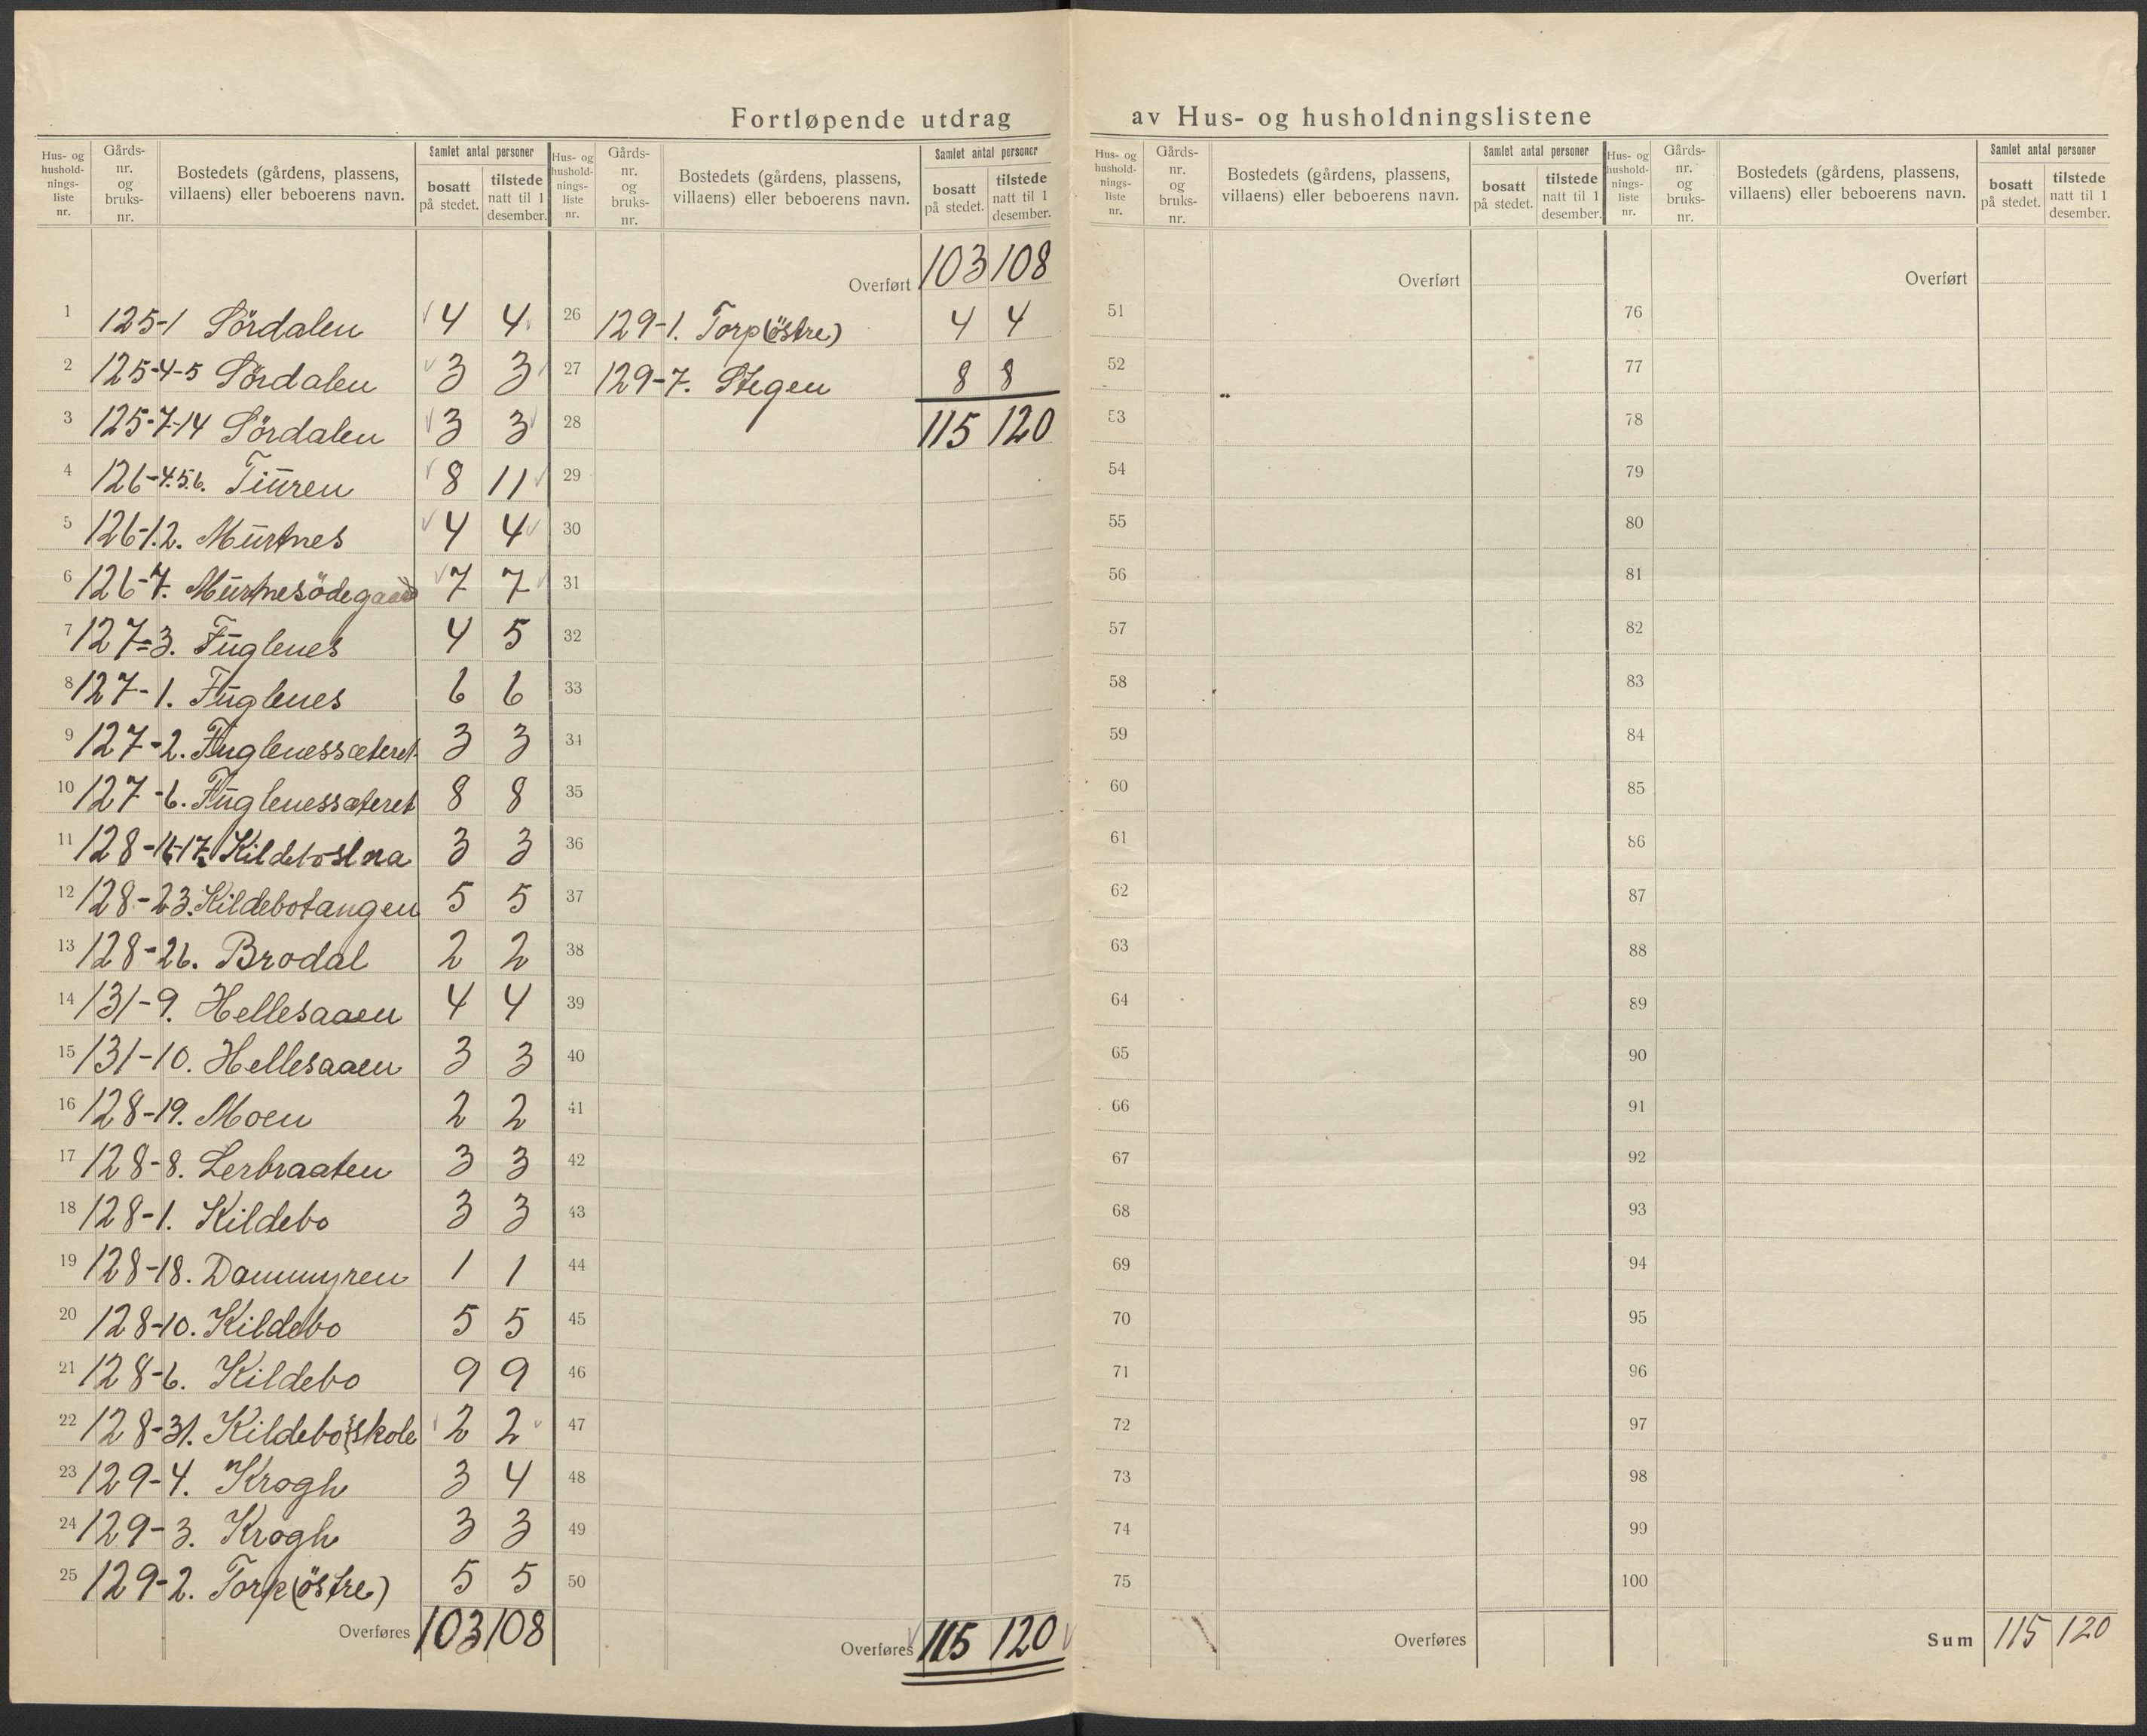 Fortløpende utdrag av Hus- og husholdningslistene
Hus- og hushold-nings-liste nr. Gårds-nr. og bruks-nr. Bostedets (gårdens, plassens, villaens) eller beboerens navn. Samlet antal personer bosatt på stedet. tilstede natt til 1 desember.
1 125-1 Sördalen 4 4
2 125-4-5 Sördalen 3 3
3 125-7-14 Sördalen 3 3
4 126-4.5.6. Tiuren 8 11
5 126-1.2. Murtnes 4 4
6 126-7. Murtnesödegaard 7 7
7 127-3. Fuglenes 4 5
8 127-1. Fuglenes 6 6
9 127-2. Fuglenessæteret 3 3
10 127-6. Fuglenessæteret 8 8
11 128-16-17. 3 3
12 128-23. Kildebotangen 5 5
13 128-26. Brodal 2 2
14 131-9. Hellesaaen 4 4
15 131-10. Hellesaaen 3 3
16 128-19. Moen 2 2
17 128-8. Lerbraaten 3 3
18 128-1. Kildebo 3 3
19 128-18. Dammyren 1 1
20 128-10. Kildebo 5 5
21 128-6. Kildebo 9 9
22 128-31. Kildebo skole 2 2
23 129-4. Krogh 3 4
24 129-3. Krogh 3 3
25 129-2. Torp (östre) 5 5
Overføres 103 108
Hus- og hushold-nings-liste nr. Gårds-nr. og bruks-nr. Bostedets (gårdens, plassens, villaens) eller beboerens navn. Samlet antal personer bosatt på stedet. tilstede natt til 1 desember.
Overført 103 108
26 129-1. Torp (östre) 4 4
27 129-7. Stegen 8 8
28 115 120
29
30
31
32
33
34
35
36
37
38
39
40
41
42
43
44
45
46
47
48
49
50
Overføres 115 120
Hus- og hushold-nings-liste nr. Gårds-nr. og bruks-nr. Bostedets (gårdens, plassens, villaens) eller beboerens navn. Samlet antal personer bosatt på stedet. tilstede natt til 1 desember.
Overført
51
52
53
54
55
56
57
58
59
60
61
62
63
64
65
66
67
68
69
70
71
72
73
74
75
Overføres
Hus- og hushold-nings-liste nr. Gårds-nr. og bruks-nr. Bostedets (gårdens, plassens, villaens) eller beboerens navn. Samlet antal personer bosatt på stedet. tilstede natt til 1 desember.
Overført
76
77
78
79
80
81
82
83
84
85
86
87
88
89
90
91
92
93
94
95
96
97
98
99
100
Sum 115 120